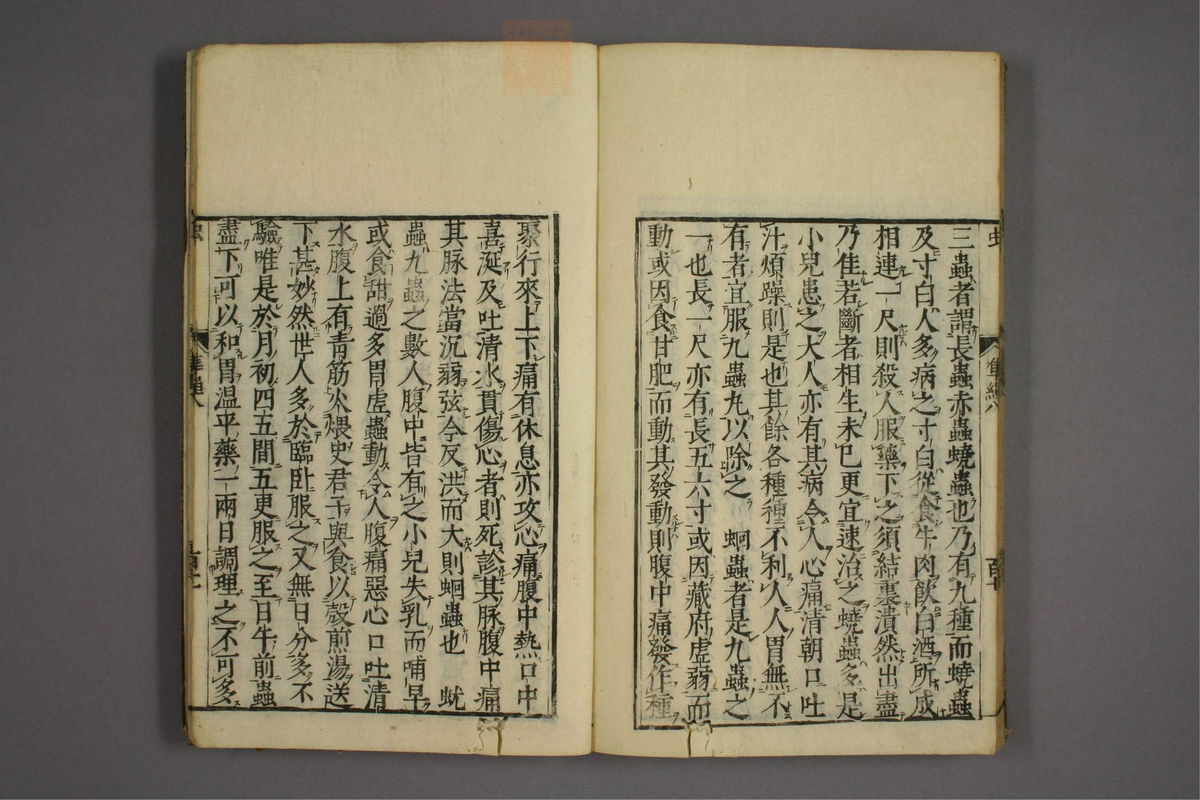 三蟲者謂長蟲赤蟲蟯蟲也乃有九種而蟯蟲
及寸白人多病之寸白從食牛肉飲白酒所成
相連一尺則殺人服藥下之須結裹潰然出盡
乃佳若斷者相生未已更宜速治之蟯蟲多是
小兒患之大人亦有其病令人心痛清朝口吐
汁煩躁則是也其餘各種種不利人人胃無不
有者宜服九蟲丸以除之　蚘蟲者是九蟲之
一也長一尺亦有長五六寸或因藏府虛弱而
動或因食甘肥而動其發動則腹中痛發作種
聚行來上下痛有休息亦攻心痛腹中熱口中
喜涎及吐清水貫傷心者則死診其脉腹中痛
其脉法當沉弱弦令反洪而大則蚘蟲也　蚘
蟲九蟲之數人腹中皆有之小兒失乳而哺早
或食甜過多胃虛蟲動令人腹痛惡心口吐清
水腹上有青筋火煨史君子與食以殼煎湯送
下甚妙然世人多於臨卧服之又無日分多不
驗唯是於月初四五間五更服之至日午前蟲
盡下可以和胃溫平藥一兩日調理之不可多